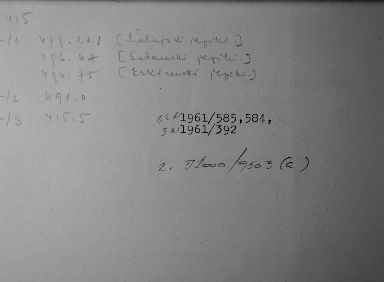 415
-/1 499.221 [Malajski jeziki.]
496.67 [Sudanski jeziki.]
494.75 [Eskimski jeziki.]
-/2 491.0
-/3 415.5
1,2 N 1961/585,584,
3 N 1961/392
2. II 1000/9503 (a)